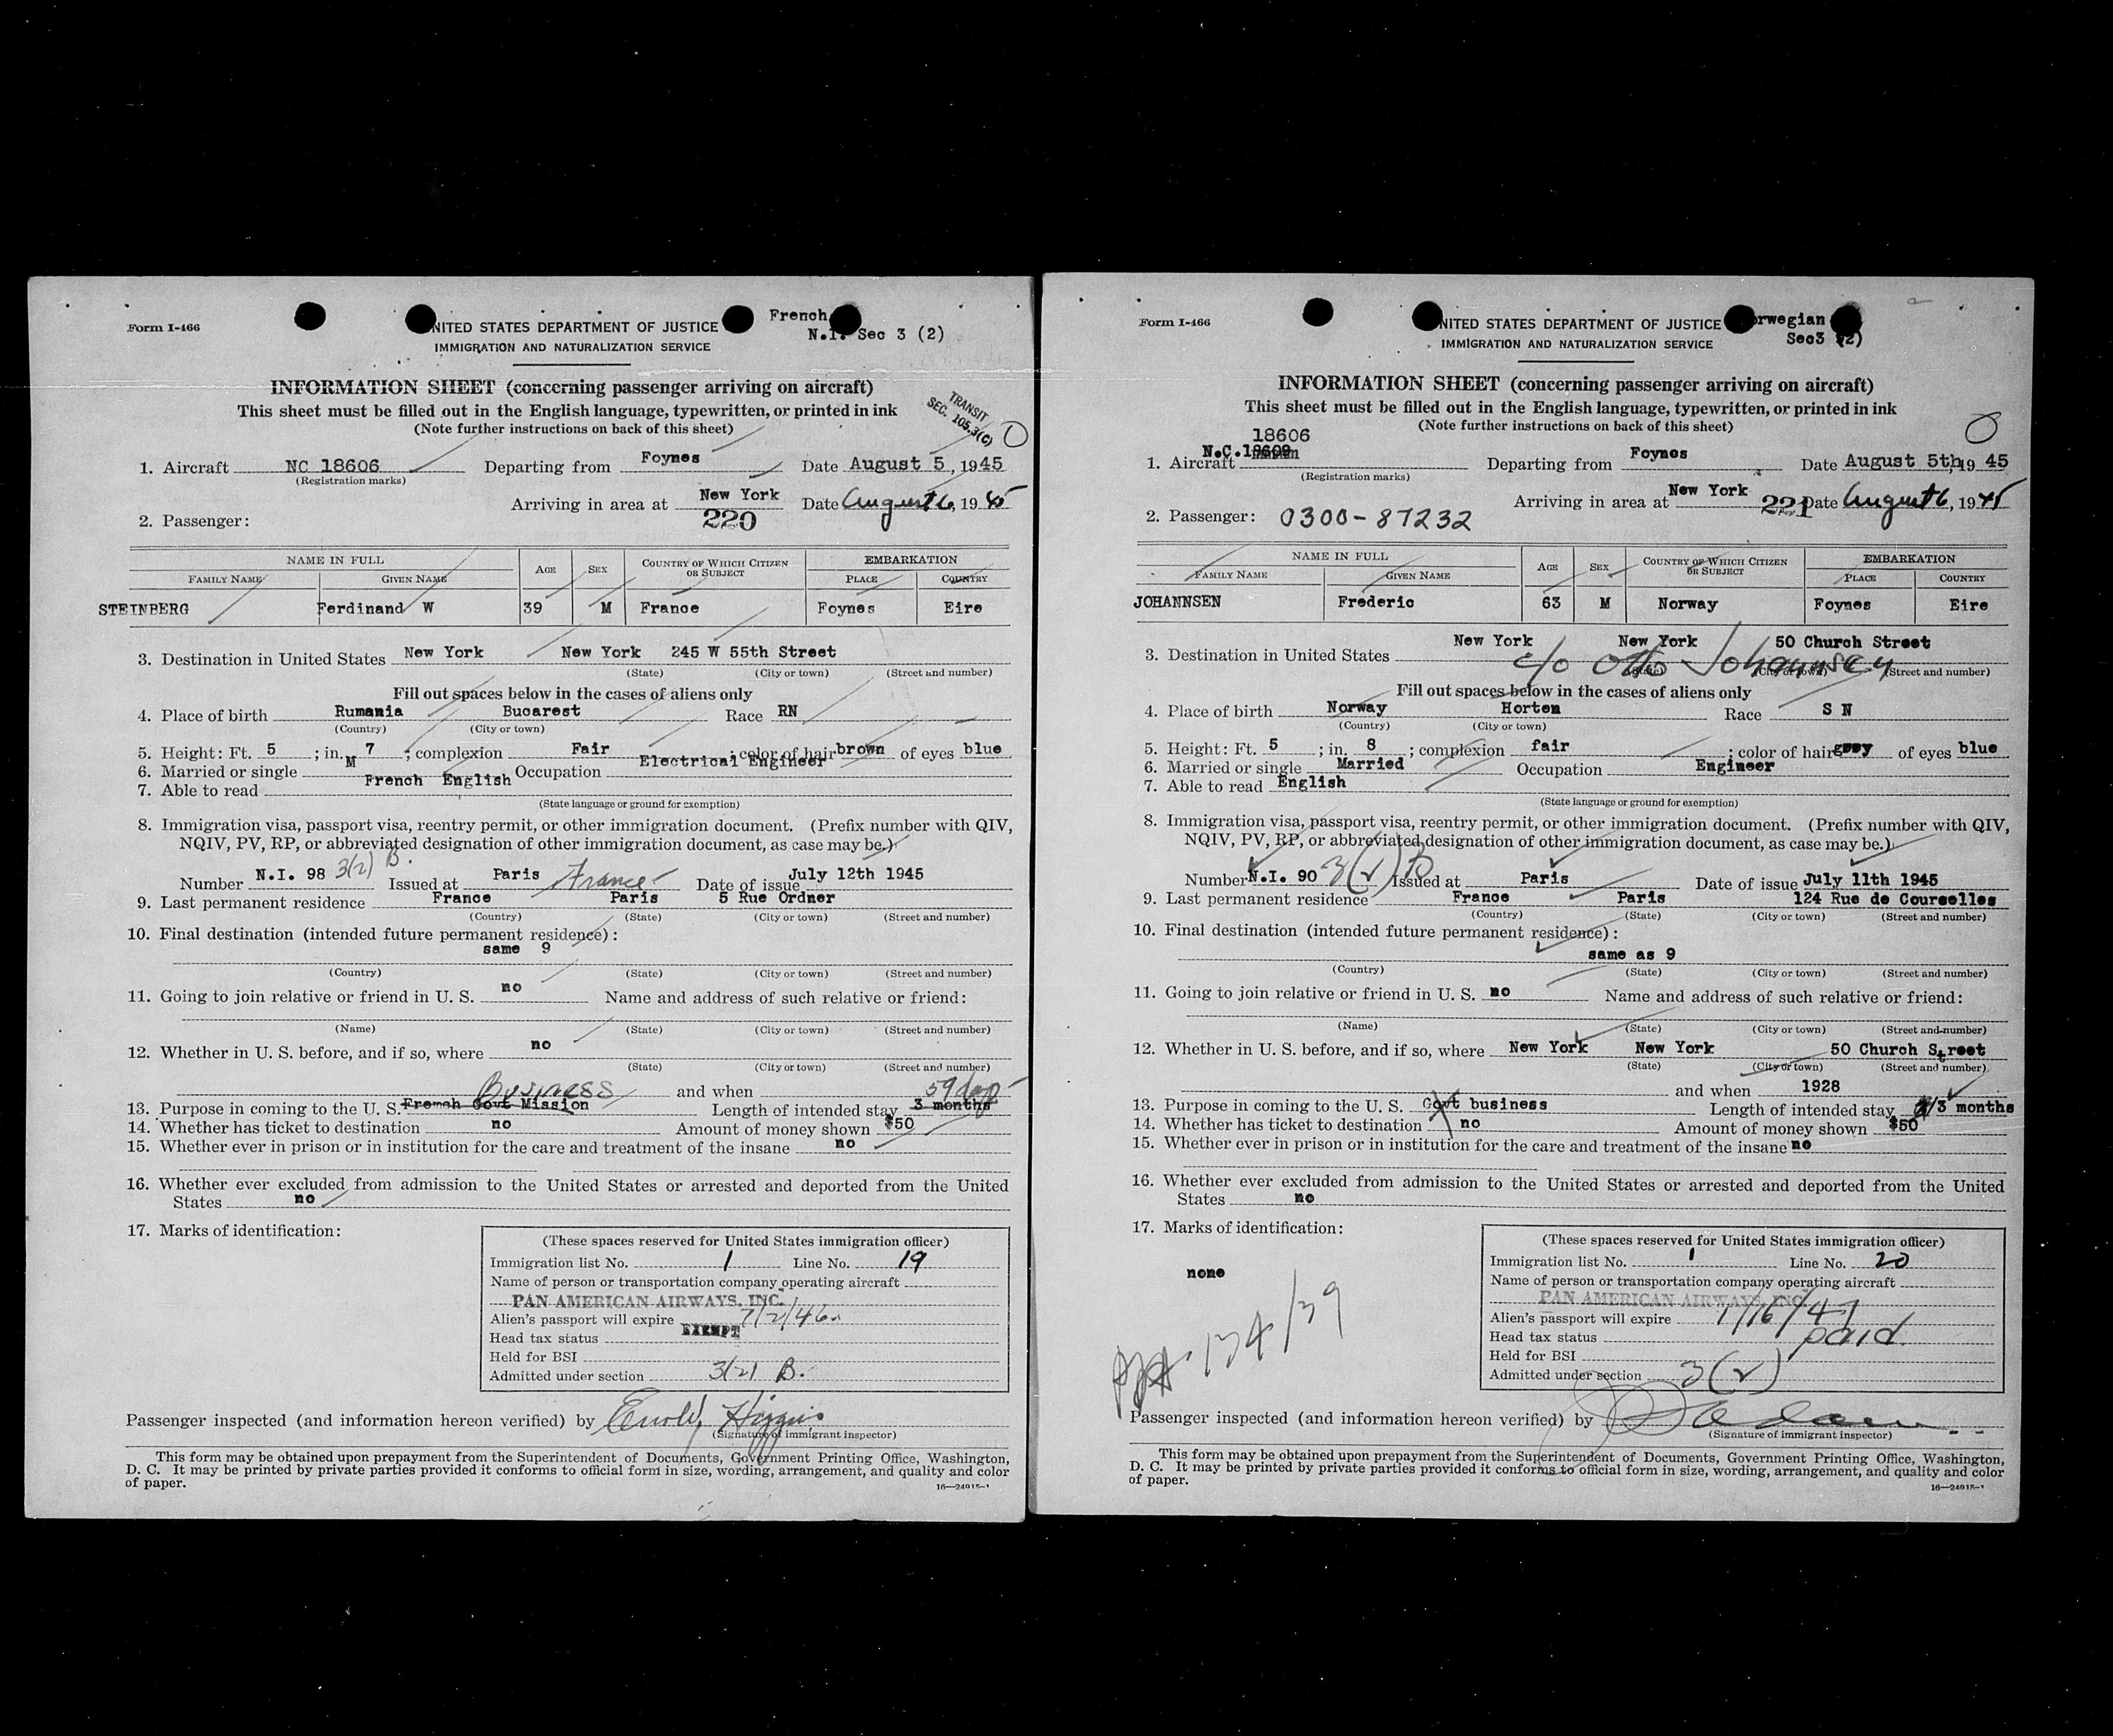 Form I-466
French
UNITED STATES DEPARTMENT OF JUSTICE
N.I. Sec 3 (2)
IMMIGRATION AND NATURALIZATION SERVICE
INFORMATION SHEET (concerning passenger arriving on aircraft)
This sheet must be filled out in the English language, typewritten, or printed in ink
(Note further instructions on back of this sheet)
TRANSIT
SEC. 105.3(C)
1. Aircraft NC 18606 Departing from Foynes Date August 5, 1945
(Registration marks)
Arriving in area at New York Date August 6, 1945
220
2. Passenger:
NAME IN FULL AGE SEX COUNTRY OF WHICH CITIZEN OR SUBJECT EMBARKATION
FAMILY NAME GIVEN NAME PLACE COUNTRY
STEINBERG Ferdinand W 39 M France Foynes Eire
3. Destination in United States New York New York 245 W 55th Street
(State) (City or town) (Street and number)
Fill out spaces below in the cases of aliens only
4. Place of birth Rumania Bucarest Race RN
(Country) (City or town)
5. Height: Ft. 5 ; in. 7 ; complexion Fair ; color of hair brown of eyes blue
6. Married or single M Occupation Electrical Engineer
7. Able to read French English
(State language or ground for exemption)
8. Immigration visa, passport visa, reentry permit, or other immigration document. (Prefix number with QIV,
NQIV, PV, RP, or abbreviated designation of other immigration document, as case may be.)
Number N.I. 98 3(2) B. Issued at Paris France Date of issue July 12th 1945
9. Last permanent residence France Paris 5 Rue Ordner
(Country) (State) (City or town) (Street and number)
10. Final destination (intended future permanent residence):
same 9
(Country) (State) (City or town) (Street and number)
11. Going to join relative or friend in U. S. no Name and address of such relative or friend:
(Name) (State) (City or town) (Street and number)
12. Whether in U. S. before, and if so, where no
(State) (City or town) (Street and number)
and when
Business 59 days
13. Purpose in coming to the U. S. French Govt Mission Length of intended stay 3 months
14. Whether has ticket to destination no Amount of money shown $50
15. Whether ever in prison or in institution for the care and treatment of the insane no
16. Whether ever excluded from admission to the United States or arrested and deported from the United
States no
17. Marks of identification:
(These spaces reserved for United States immigration officer)
Immigration list No. 1 Line No. 19
Name of person or transportation company operating aircraft
PAN AMERICAN AIRWAYS, INC.
Alien's passport will expire 7/2/46
Head tax status EXEMPT
Held for BSI
Admitted under section 3(2) B.
Passenger inspected (and information hereon verified) by Higgins
(Signature of immigrant inspector)
This form may be obtained upon prepayment from the Superintendent of Documents, Government Printing Office, Washington,
D. C. It may be printed by private parties provided it conforms to official form in size, wording, arrangement, and quality and color
of paper.
16—24915-1
Form I-466
rwegian
UNITED STATES DEPARTMENT OF JUSTICE
Sec3 (2)
IMMIGRATION AND NATURALIZATION SERVICE
INFORMATION SHEET (concerning passenger arriving on aircraft)
This sheet must be filled out in the English language, typewritten, or printed in ink
(Note further instructions on back of this sheet)
18606
1. Aircraft N.C.18609 Departing from Foynes Date August 5th, 1945
(Registration marks)
Arriving in area at New York Date August 6, 1945
221
2. Passenger: 0300-87232
NAME IN FULL AGE SEX COUNTRY OF WHICH CITIZEN OR SUBJECT EMBARKATION
FAMILY NAME GIVEN NAME PLACE COUNTRY
JOHANNSEN Frederic 63 M Norway Foynes Eire
3. Destination in United States New York New York 50 Church Street
c/o Otto Johannsen
(State) (City or town) (Street and number)
Fill out spaces below in the cases of aliens only
4. Place of birth Norway Horten Race S N
(Country) (City or town)
5. Height: Ft. 5 ; in. 8 ; complexion fair ; color of hair grey of eyes blue
6. Married or single Married Occupation Engineer
7. Able to read English
(State language or ground for exemption)
8. Immigration visa, passport visa, reentry permit, or other immigration document. (Prefix number with QIV,
NQIV, PV, RP, or abbreviated designation of other immigration document, as case may be.)
Number N.I. 90 3(2) B Issued at Paris Date of issue July 11th 1945
9. Last permanent residence France Paris 124 Rue de Courcelles
(Country) (State) (City or town) (Street and number)
10. Final destination (intended future permanent residence):
same as 9
(Country) (State) (City or town) (Street and number)
11. Going to join relative or friend in U. S. no Name and address of such relative or friend:
(Name) (State) (City or town) (Street and number)
12. Whether in U. S. before, and if so, where New York New York 50 Church Street
(State) (City or town) (Street and number)
and when 1928
13. Purpose in coming to the U. S. Govt business Length of intended stay 3 months
14. Whether has ticket to destination no Amount of money shown $50
15. Whether ever in prison or in institution for the care and treatment of the insane no
16. Whether ever excluded from admission to the United States or arrested and deported from the United
States no
17. Marks of identification:
none
ppt 134/39
(These spaces reserved for United States immigration officer)
Immigration list No. 1 Line No. 20
Name of person or transportation company operating aircraft
PAN AMERICAN AIRWAYS, INC.
Alien's passport will expire 1/16/47
Head tax status paid
Held for BSI
Admitted under section 3(2)
Passenger inspected (and information hereon verified) by
(Signature of immigrant inspector)
This form may be obtained upon prepayment from the Superintendent of Documents, Government Printing Office, Washington,
D. C. It may be printed by private parties provided it conforms to official form in size, wording, arrangement, and quality and color
of paper.
16—24915-1